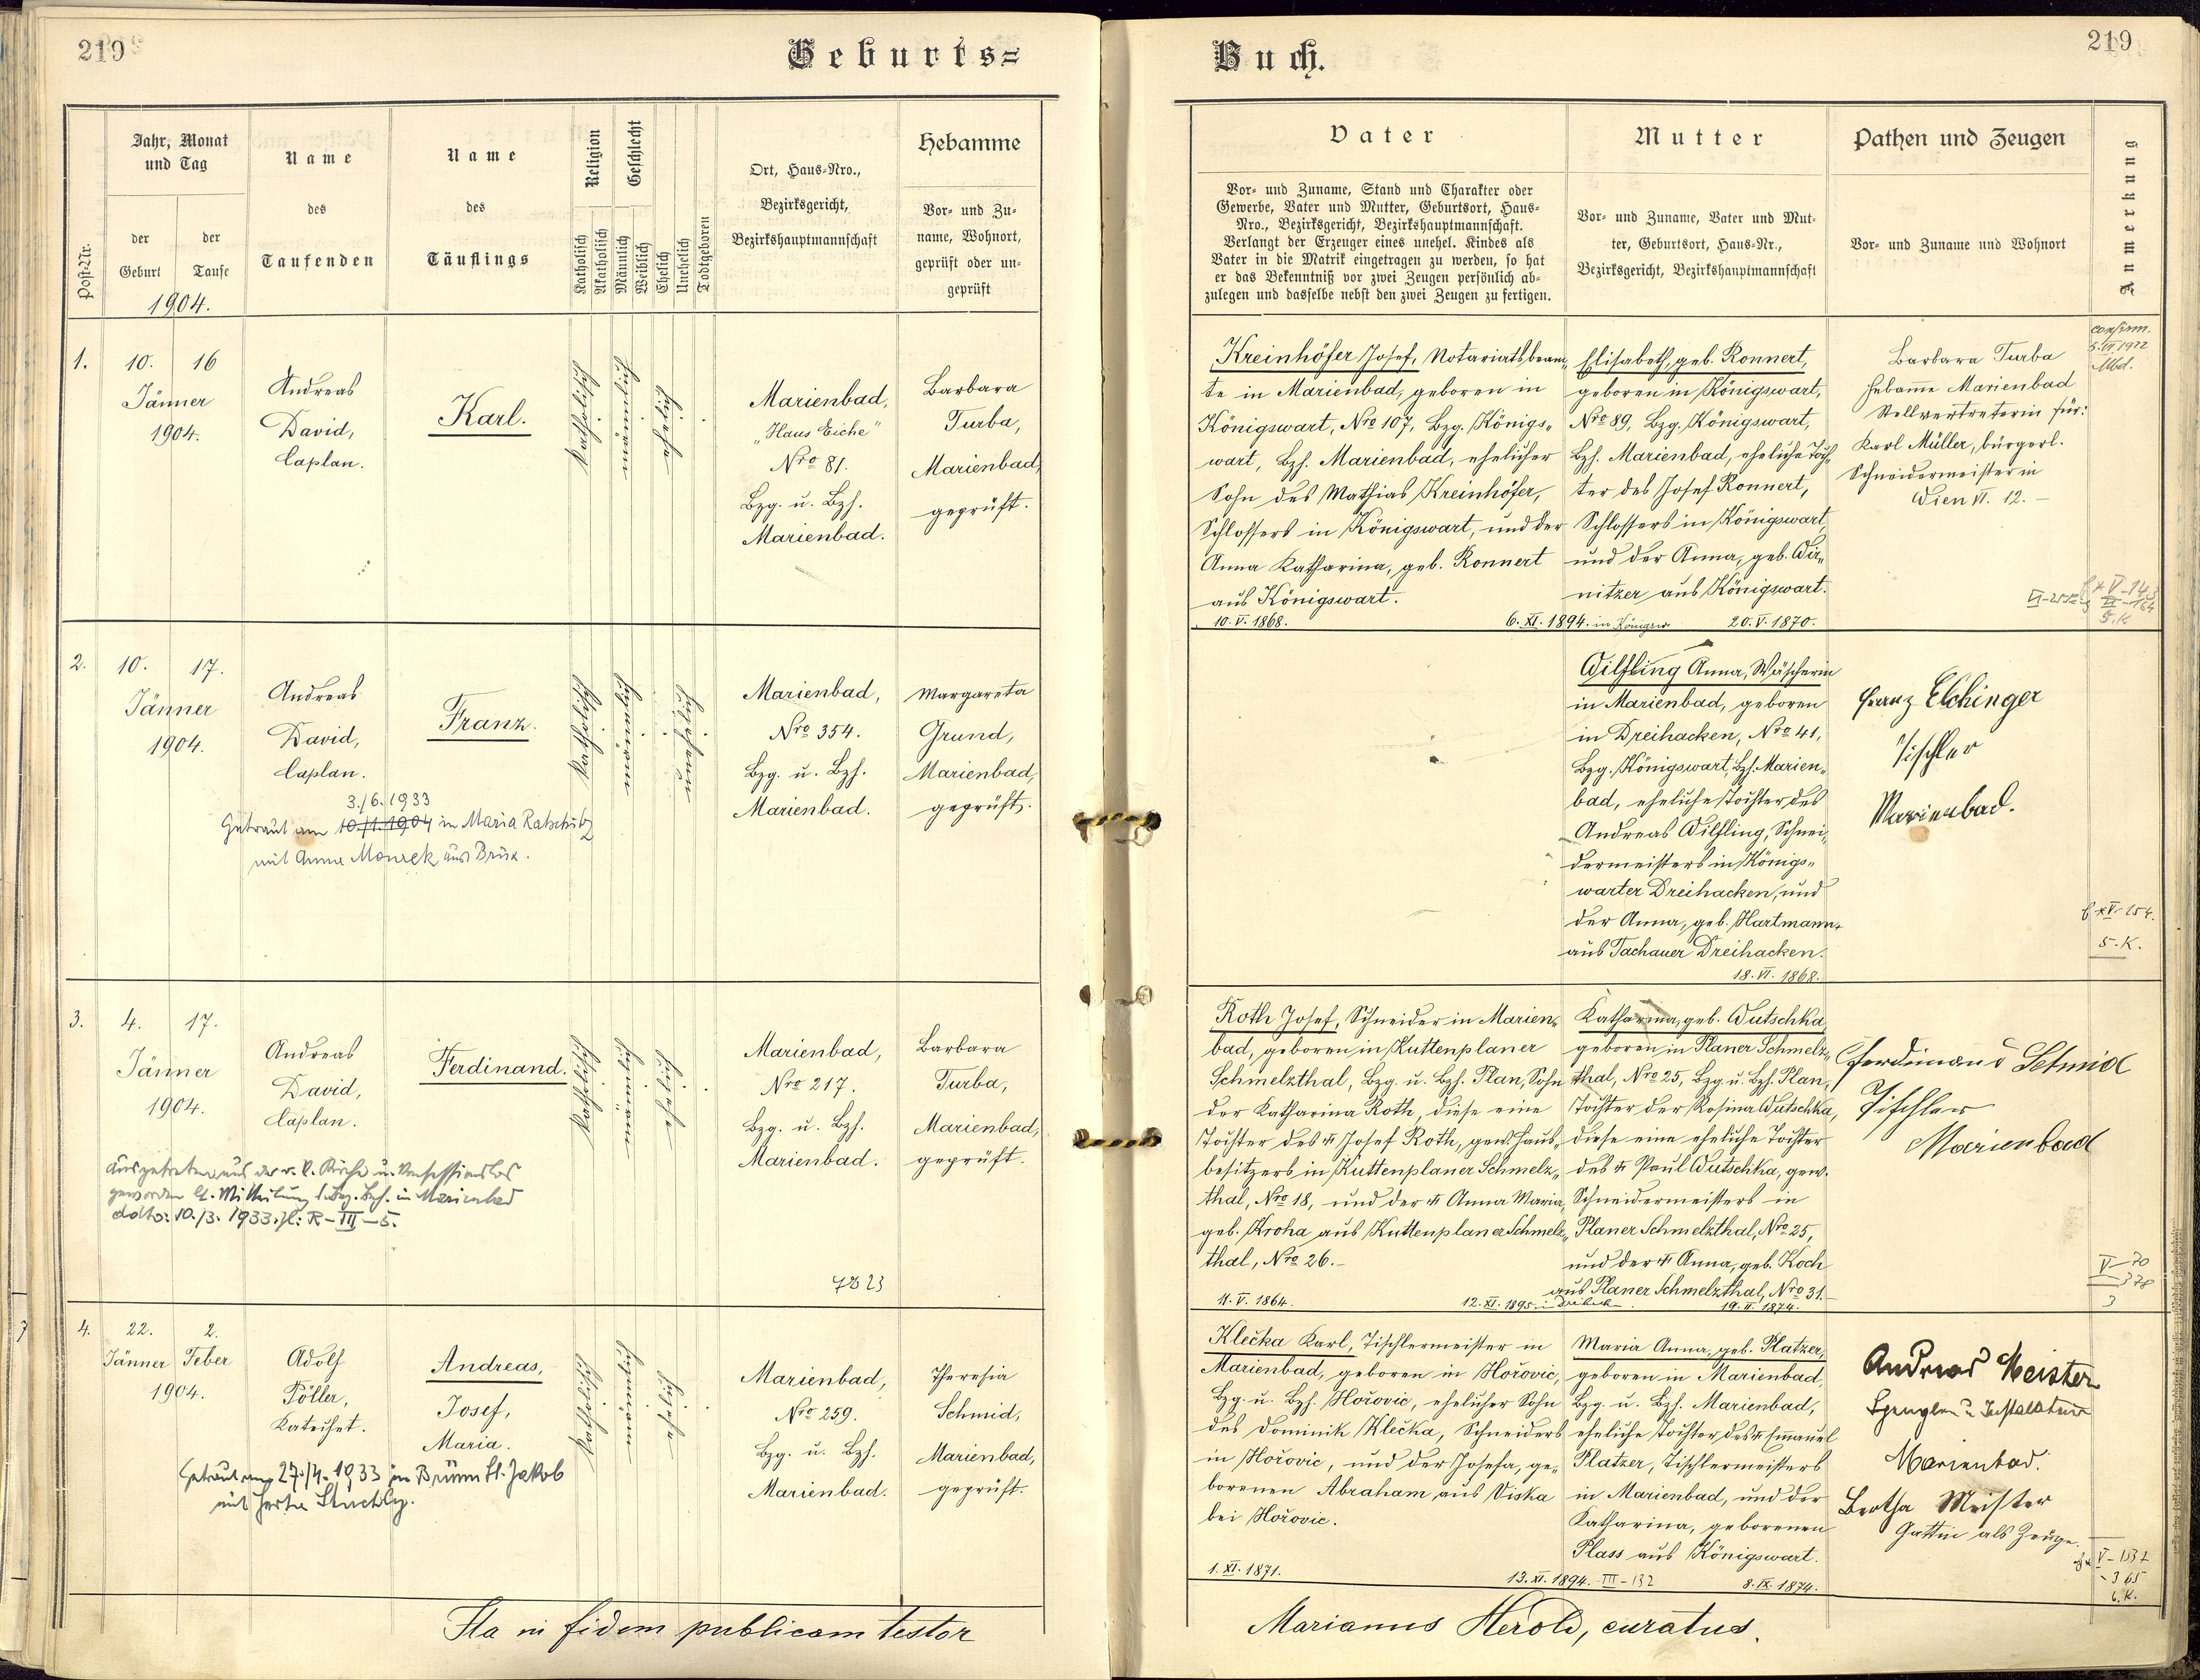 219
Geburts=
Jahr, Monat
und Tag
Name
Name
Religion
Geschlecht
Ort, Haus=Nro.,
Bezirksgericht,
Bezirkshauptmannschaft
Hebamme
Post=Nr.
der
Geburt
der
Taufe
des
Taufenden
des
Täuflings
Katholisch
Akatholisch
Männlich
Weiblich
Ehelich
Unehelich
Todtgeboren
Vor= und Zu=
name, Wohnort,
geprüft oder un=
geprüft
1904.
1.
10.
16
Jänner
1904.
Andreas
David,
Caplan.
Karl.
Katholisch
Marienbad,
„Haus Eiche"
Nro 81.
Bzg. u. Bzh.
Marienbad.
Barbara
Turba,
Marienbad,
geprüft.
2.
10.
17.
Jänner
1904.
Andreas
David,
Caplan.
Franz.
Katholisch
Marienbad,
Nro 354.
Bzg. u. Bzh.
Marienbad.
Margareta
Grund,
Marienbad,
geprüft.
3./6.1933
Getraut am 10./1.1904 in Maria Ratschitz
mit Anna Monzek aus Brüx.
3.
4.
17.
Jänner
1904.
Andreas
David,
Caplan.
Ferdinand.
Katholisch
Marienbad,
Nro 217.
Bzg. u. Bzh.
Marienbad.
Barbara
Turba,
Marienbad,
geprüft.
Ausgetreten aus der r. k. Kirche u. konfessionslos
geworden lt. Mitteilung d. Bez. Beh. in Marienbad
ddto: 10./3. 1933. Zl: R-III-5.
4.
22.
2.
Jänner
Feber
1904.
Adolf
Pöller,
Katechet.
Andreas,
Josef,
Maria.
Katholisch
Marienbad,
Nro 259.
Bzg. u. Bzh.
Marienbad.
Theresia
Schmid,
Marienbad,
geprüft.
Getraut am 27./4. 1933 in Brünn St. Jakob
mit Herta Stuchly.
Ita in fidem publicam testor
Buch.
219
Vater
Mutter
Pathen und Zeugen
Anmerkung
Vor= und Zuname, Stand und Charakter oder
Gewerbe, Vater und Mutter, Geburtsort, Haus=
Nro., Bezirksgericht, Bezirkshauptmannschaft.
Verlangt der Erzeuger eines unehel. Kindes als
Vater in die Matrik eingetragen zu werden, so hat
er das Bekenntniß vor zwei Zeugen persönlich ab=
zulegen und dasselbe nebst den zwei Zeugen zu fertigen.
Vor= und Zuname, Vater und Mut=
ter, Geburtsort, Haus=Nr.,
Bezirksgericht, Bezirkshauptmannschaft
Vor= und Zuname und Wohnort
Kreinhöfer Josef, Notariatsbeam„
te in Marienbad, geboren in
Königswart, Nro 107, Bzg. Königs„
wart, Bzh. Marienbad, ehelicher
Sohn des Mathias Kreinhöfer,
Schlossers in Königswart, und der
Anna Katharina, geb. Ronnert
aus Königswart.
10. V. 1868.
6. XI. 1894. in Königsw.
Elisabeth, geb. Ronnert,
geboren in Königswart,
Nro 89, Bzg. Königswart,
Bzh. Marienbad, eheliche Toch„
ter des Josef Ronnert,
Schlossers in Königswart,
und der Anna, geb. Wir„
nitzer aus Königswart.
20. V. 1870.
Barbara Turba
Hebamme Marienbad
Stellvertreterin für:
Karl Müller, bürgerl.
Schneidermeister in
Wien VI. 12.
confirm.
5. VII 1922
Mbd.
Wilfling Anna, Wäscherin
in Marienbad, geboren
in Dreihacken, Nro 41,
Bzg. Königswart, Bzh. Marien„
bad, eheliche Tochter des
Andreas Wilfling, Schnei„
dermeisters in Königs„
warter Dreihacken, und
der Anna, geb. Hartmann,
aus Tachauer Dreihacken.
18. VI. 1868.
Franz Elchinger
Tischler
Marienbad.
5. K.
Roth Josef, Schneider in Marien„
bad, geboren in Kuttenplaner
Schmelzthal, Bzg. u. Bzh. Plan, Sohn
der Katharina Roth, diese eine
Tochter des † Josef Roth, gew. Haus„
besitzers in Kuttenplaner Schmelz„
thal, Nro 18, und der † Anna Maria,
geb. Kroha aus Kuttenplaner Schmelz„
thal, Nro 26.
11. V. 1864.
12. XI. 1895.
Katharina, geb. Wutschka,
geboren in Planer Schmelz„
thal, Nro 25, Bzg. u. Bzh. Plan,
Tochter der Rosina Wutschka,
diese eine eheliche Tochter
des † Paul Wutschka, gew.
Schneidermeisters in
Planer Schmelzthal, Nro 25,
und der † Anna, geb. Koch
aus Planer Schmelzthal, Nro 31.
19. II. 1874.
Ferdinand Schmid
Tischler
Marienbad
V-70
378
3
Klečka Karl, Tischlermeister in
Marienbad, geboren in Hořovic,
Bzg. u. Bzh. Hořovic, ehelicher Sohn
des Dominik Klečka, Schneiders
in Hořovic, und der Josefa, ge„
borenen Abraham aus Viska
bei Hořovic.
1. XI. 1871.
13. XI. 1894. III-132
Maria Anna, geb. Platzer,
geboren in Marienbad,
Bzg. u. Bzh. Marienbad,
eheliche Tochter des † Emanuel
Platzer, Tischlermeisters
in Marienbad, und der
Katharina, geborenen
Plass aus Königswart.
8. IX. 1874.
Andreas Meister
Spengler u. Installateur
Marienbad.
Bertha Meister
Gattin als Zeuge.
6. K.
Marianus Herold, curatus.